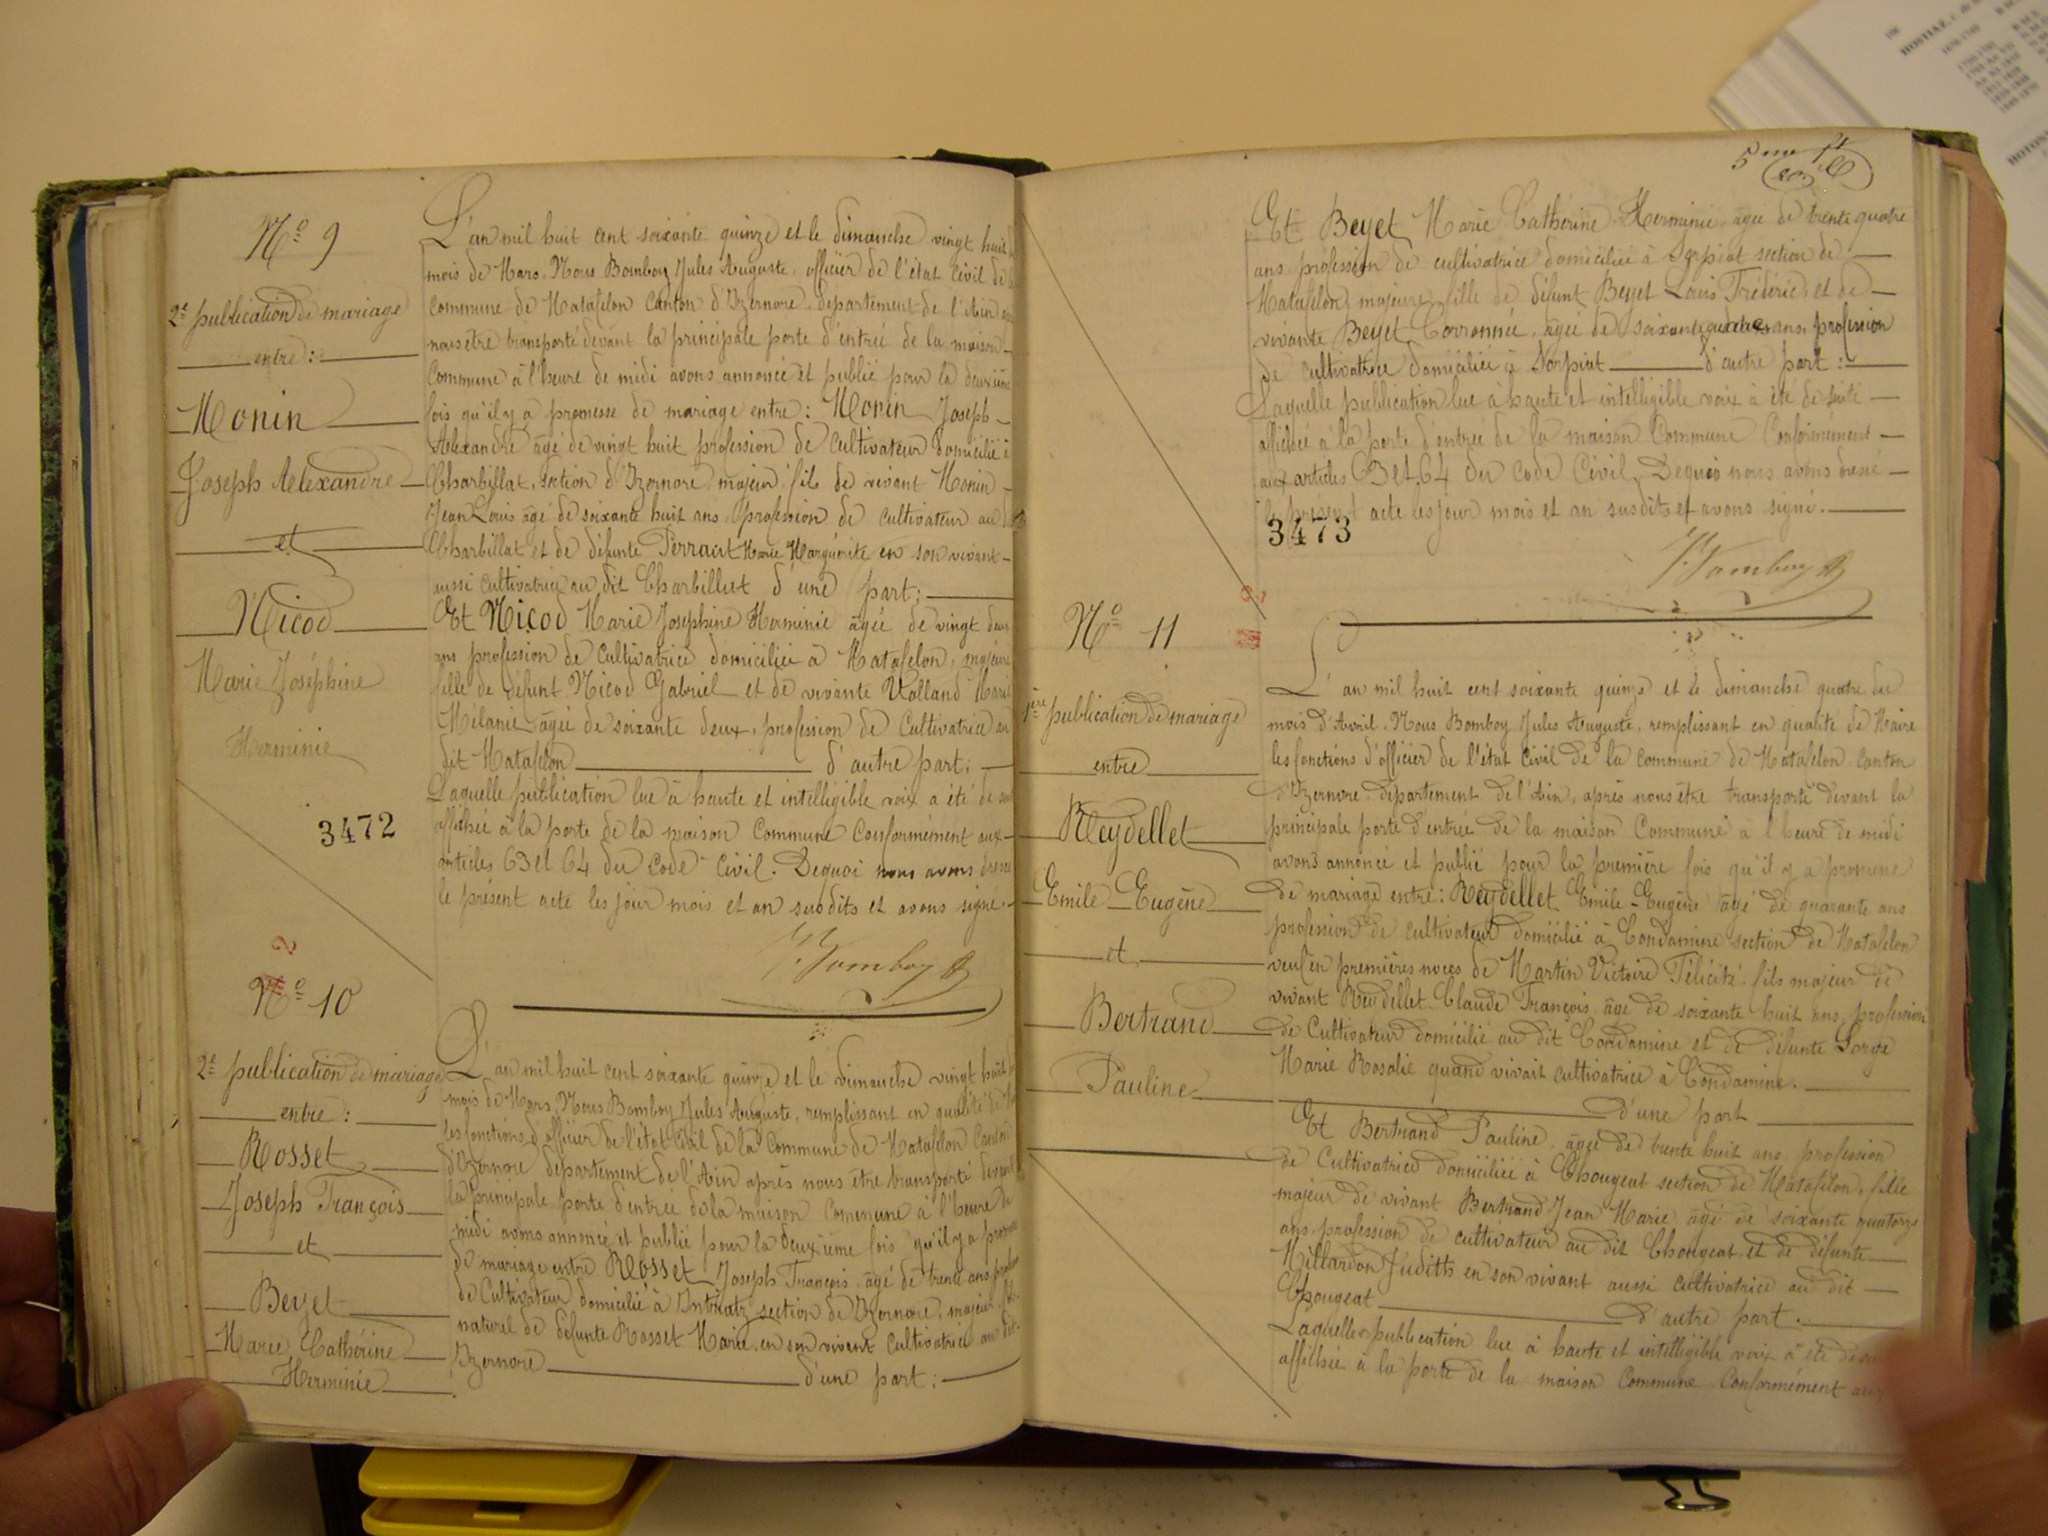 Nº 9
2e publication de mariage
entre :
Monin
Joseph Alexandre
et
Nicod
Marie Joséphine
Herminie
3472
L'an mil huit cent soixante quinze et le dimanche vingt huit
mois de Mars. Nous Bomboy Jules Auguste, officier de l'état civil de
commune de Matafelon canton d'Izernore, département de l'Ain
nous être transporté devant la principale porte d'entrée de la maison
Commune à l'heure de midi avons annoncé et publié pour la deuxième
fois qu'il y a promesse de mariage entre : Monin Joseph
Alexandre âgé de vingt huit profession de cultivateur domicilié à
Charbillat, section d'Izernore, majeur, fils de vivant Monin
Jean Louis âgé de soixante huit ans, profession de cultivateur au
Charbillat et de défunte Perraut Marie Marguerite en son vivant
aussi cultivatrice au dit Charbillat d'une part ;
Et Nicod Marie Joséphine Herminie âgée de vingt deux
ans profession de cultivatrice domiciliée à Matafelon, majeure
fille de défunt Nicod Gabriel et de vivante Volland Marie
Mélanie âgée de soixante deux, profession de Cultivatrice au
dit Matafelon d'autre part ;
Laquelle publication lue à haute et intelligible voix a été de
affichée à la porte de la maison Commune Conformément aux
articles 63 et 64 du code Civil. Dequoi nous avons dressé
le présent acte les jour mois et an susdits et avons signé.
Bomboy
2
Nº 10
2e publication de mariage
entre :
Rosset
Joseph François
et
Beyet
Marie Cathérine
Herminie
L'an mil huit cent soixante quinze et le dimanche vingt huit
mois de Mars. Nous Bomboy Jules Auguste, remplissant en qualité de
les fonctions d'officier de l'état civil de la Commune de Matafelon Canton
d'Izernore département de l'Ain après nous être transporté devant
la principale porte d'entrée de la maison Commune à l'heure de
midi avons annoncé et publié pour la deuxième fois qu'il y a promesse
de mariage entre Rosset Joseph François, âgé de trente ans
de Cultivateur domicilié à section de Izernore, majeur
naturel de défunte Rosset Marie, en son vivant cultivatrice au dit
Izernore d'une part :
5me
Et Beyet Marie Cathérine Herminie âgée de trente quatre
ans profession de cultivatrice domiciliée à Sorpiat section de
Matafelon, majeure fille de défunt Beyet Louis Fréderic et de
vivante Beyet âgée de soixante ans, profession
de cultivatrice domiciliée à Sorpiat d'autre part :
Laquelle publication lue à haute et intelligible voix à été de suite
affichée à la porte d'entrée de la maison Commune Conformément
aux articles 63 et 64 du code Civil. Dequoi nous avons dressé
le présent acte les jour mois et an susdits et avons signé.
3473
Bomboy
Nº 11
1ère publication de mariage
entre
Reydellet
Emile Eugène
et
Bertrand
Pauline
L'an mil huit cent soixante quinze et le dimanche quatre du
mois d'Avril. Nous Bomboy Jules Auguste, remplissant en qualité de Maire
les fonctions d'officier de l'état Civil de la Commune de Matafelon canton
d'Izernore, département de l'Ain, après nous être transporté devant la
principale porte d'entrée de la maison Commune à l'heure de midi
avons annoncé et publié pour la première fois qu'il y a promesse
de mariage entre : Reydellet Emile Eugène âgé de quarante ans
profession de cultivateur domicilié à Condamine section de Matafelon
veuf en premières noces de Martin Victoire Félicité, fils majeur de
vivant Reydellet Claude François âgé de soixante huit ans, profession
de Cultivateur domicilié au dit Condamine et de défunte
Marie Rosalie quand vivait cultivatrice à Condamine.
d'une part
Et Bertrand Pauline, âgée de trente huit ans, profession
de Cultivatrice domiciliée à Chougeat section de Matafelon, fille
majeur de vivant Bertrand Jean Marie âgé de soixante quatorze
ans, profession de cultivateur au dit Chougeat et de défunte
Millardon Judith en son vivant aussi cultivatrice au dit
Chougeat d'autre part.
Laquelle publication lue à haute et intelligible voix à été de
affichée à la porte de la maison Commune Conformément aux